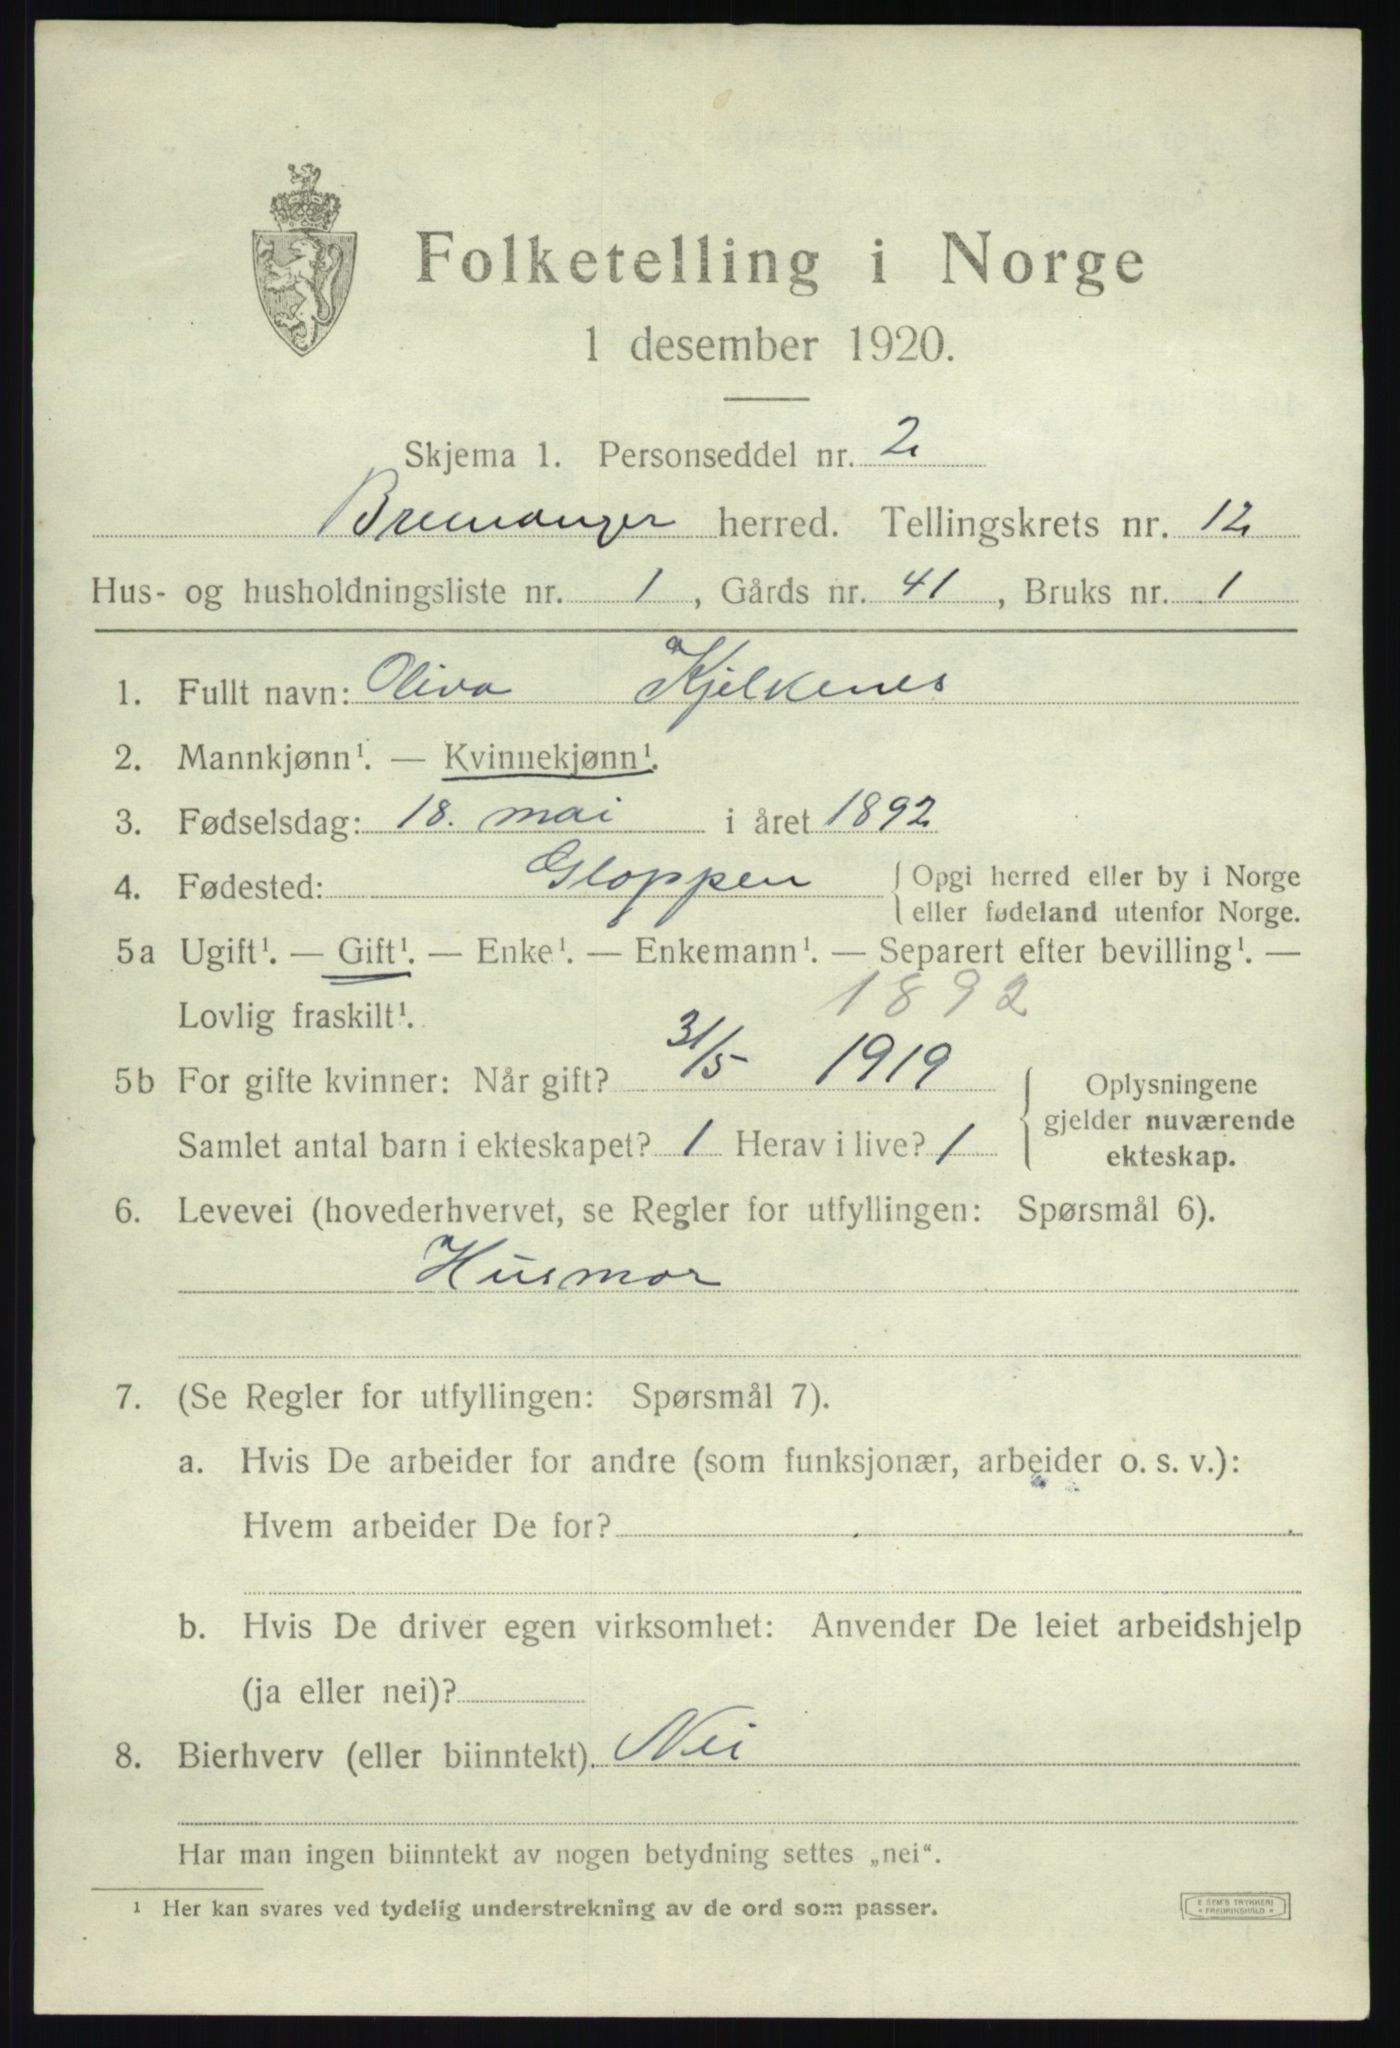 Folketelling i Norge
1 desember 1920.
Skjema 1. Personseddel nr. 2
Bremanger herred. Tellingskrets nr. 12
Hus- og husholdningsliste nr. 1, Gårds nr. 41, Bruks nr. 1
1. Fullt navn: Oliva Kjelkenes
2. Mannkjønn¹. — Kvinnekjønn¹.
3. Fødselsdag: 18. mai i året 1892
4. Fødested: Gloppen { Opgi herred eller by i Norge
eller fødeland utenfor Norge.
5a Ugift¹. — Gift¹. — Enke¹. — Enkemann¹. — Separert efter bevilling¹. —
Lovlig fraskilt¹. 1892
5b For gifte kvinner: Når gift? 31/5 1919
Samlet antal barn i ekteskapet? 1 Herav i live? 1
{ Oplysningene
gjelder nuværende
ekteskap.
6. Levevei (hovederhvervet, se Regler for utfyllingen: Spørsmål 6).
Husmor
7. (Se Regler for utfyllingen: Spørsmål 7).
a. Hvis De arbeider for andre (som funksjonær, arbeider o. s. v.):
Hvem arbeider De for?
b. Hvis De driver egen virksomhet: Anvender De leiet arbeidshjelp
(ja eller nei)?
8. Bierhverv (eller biinntekt). Nei
Har man ingen biinntekt av nogen betydning settes „nei“.
¹ Her kan svares ved tydelig understrekning av de ord som passer.
E. SEM'S TRYKKERI
FREDRIKSHALD